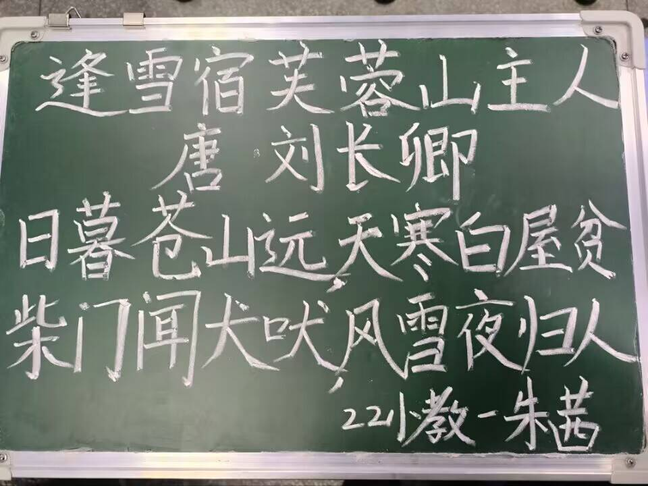 逢雪宿芙蓉山主人
唐 刘长卿
日暮苍山远,天寒白屋贫
柴门闻犬吠,风雪夜归人
22小教一朱茜